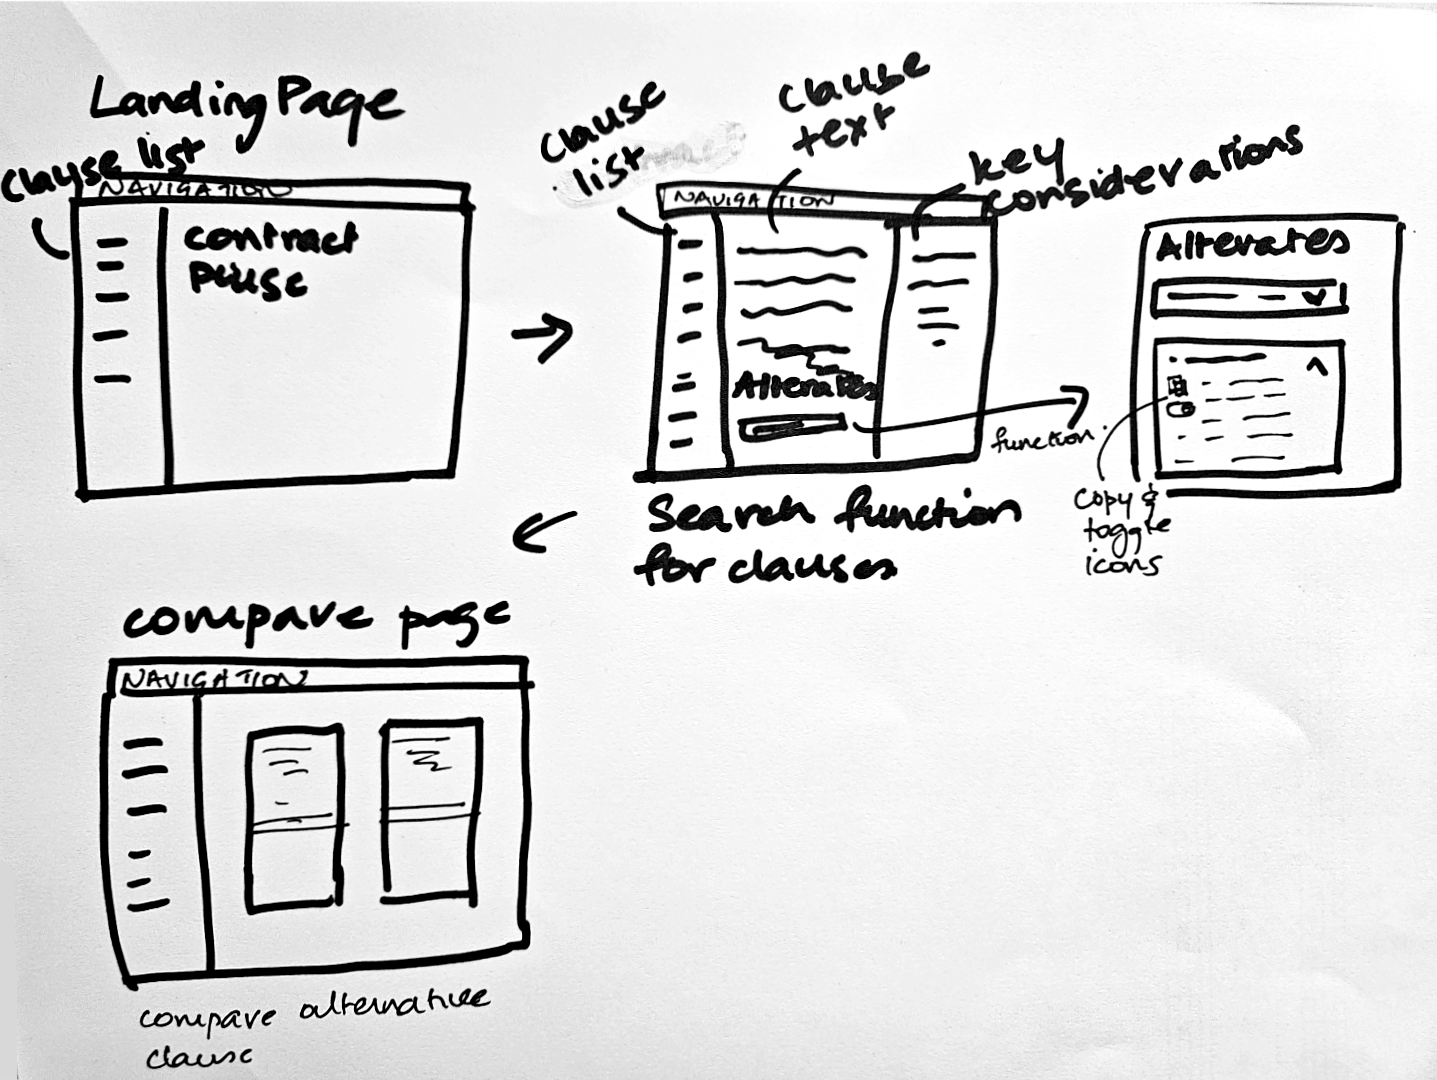 Landing Page
clause list
NAVIGATION
contract
pulse
clause
list
clause
text
key
considerations
NAVIGATION
Alterates
function.
Search function
for clauses
Alterates
copy &
toggle
icons
compare page
NAVIGATION
compare alternative
clause